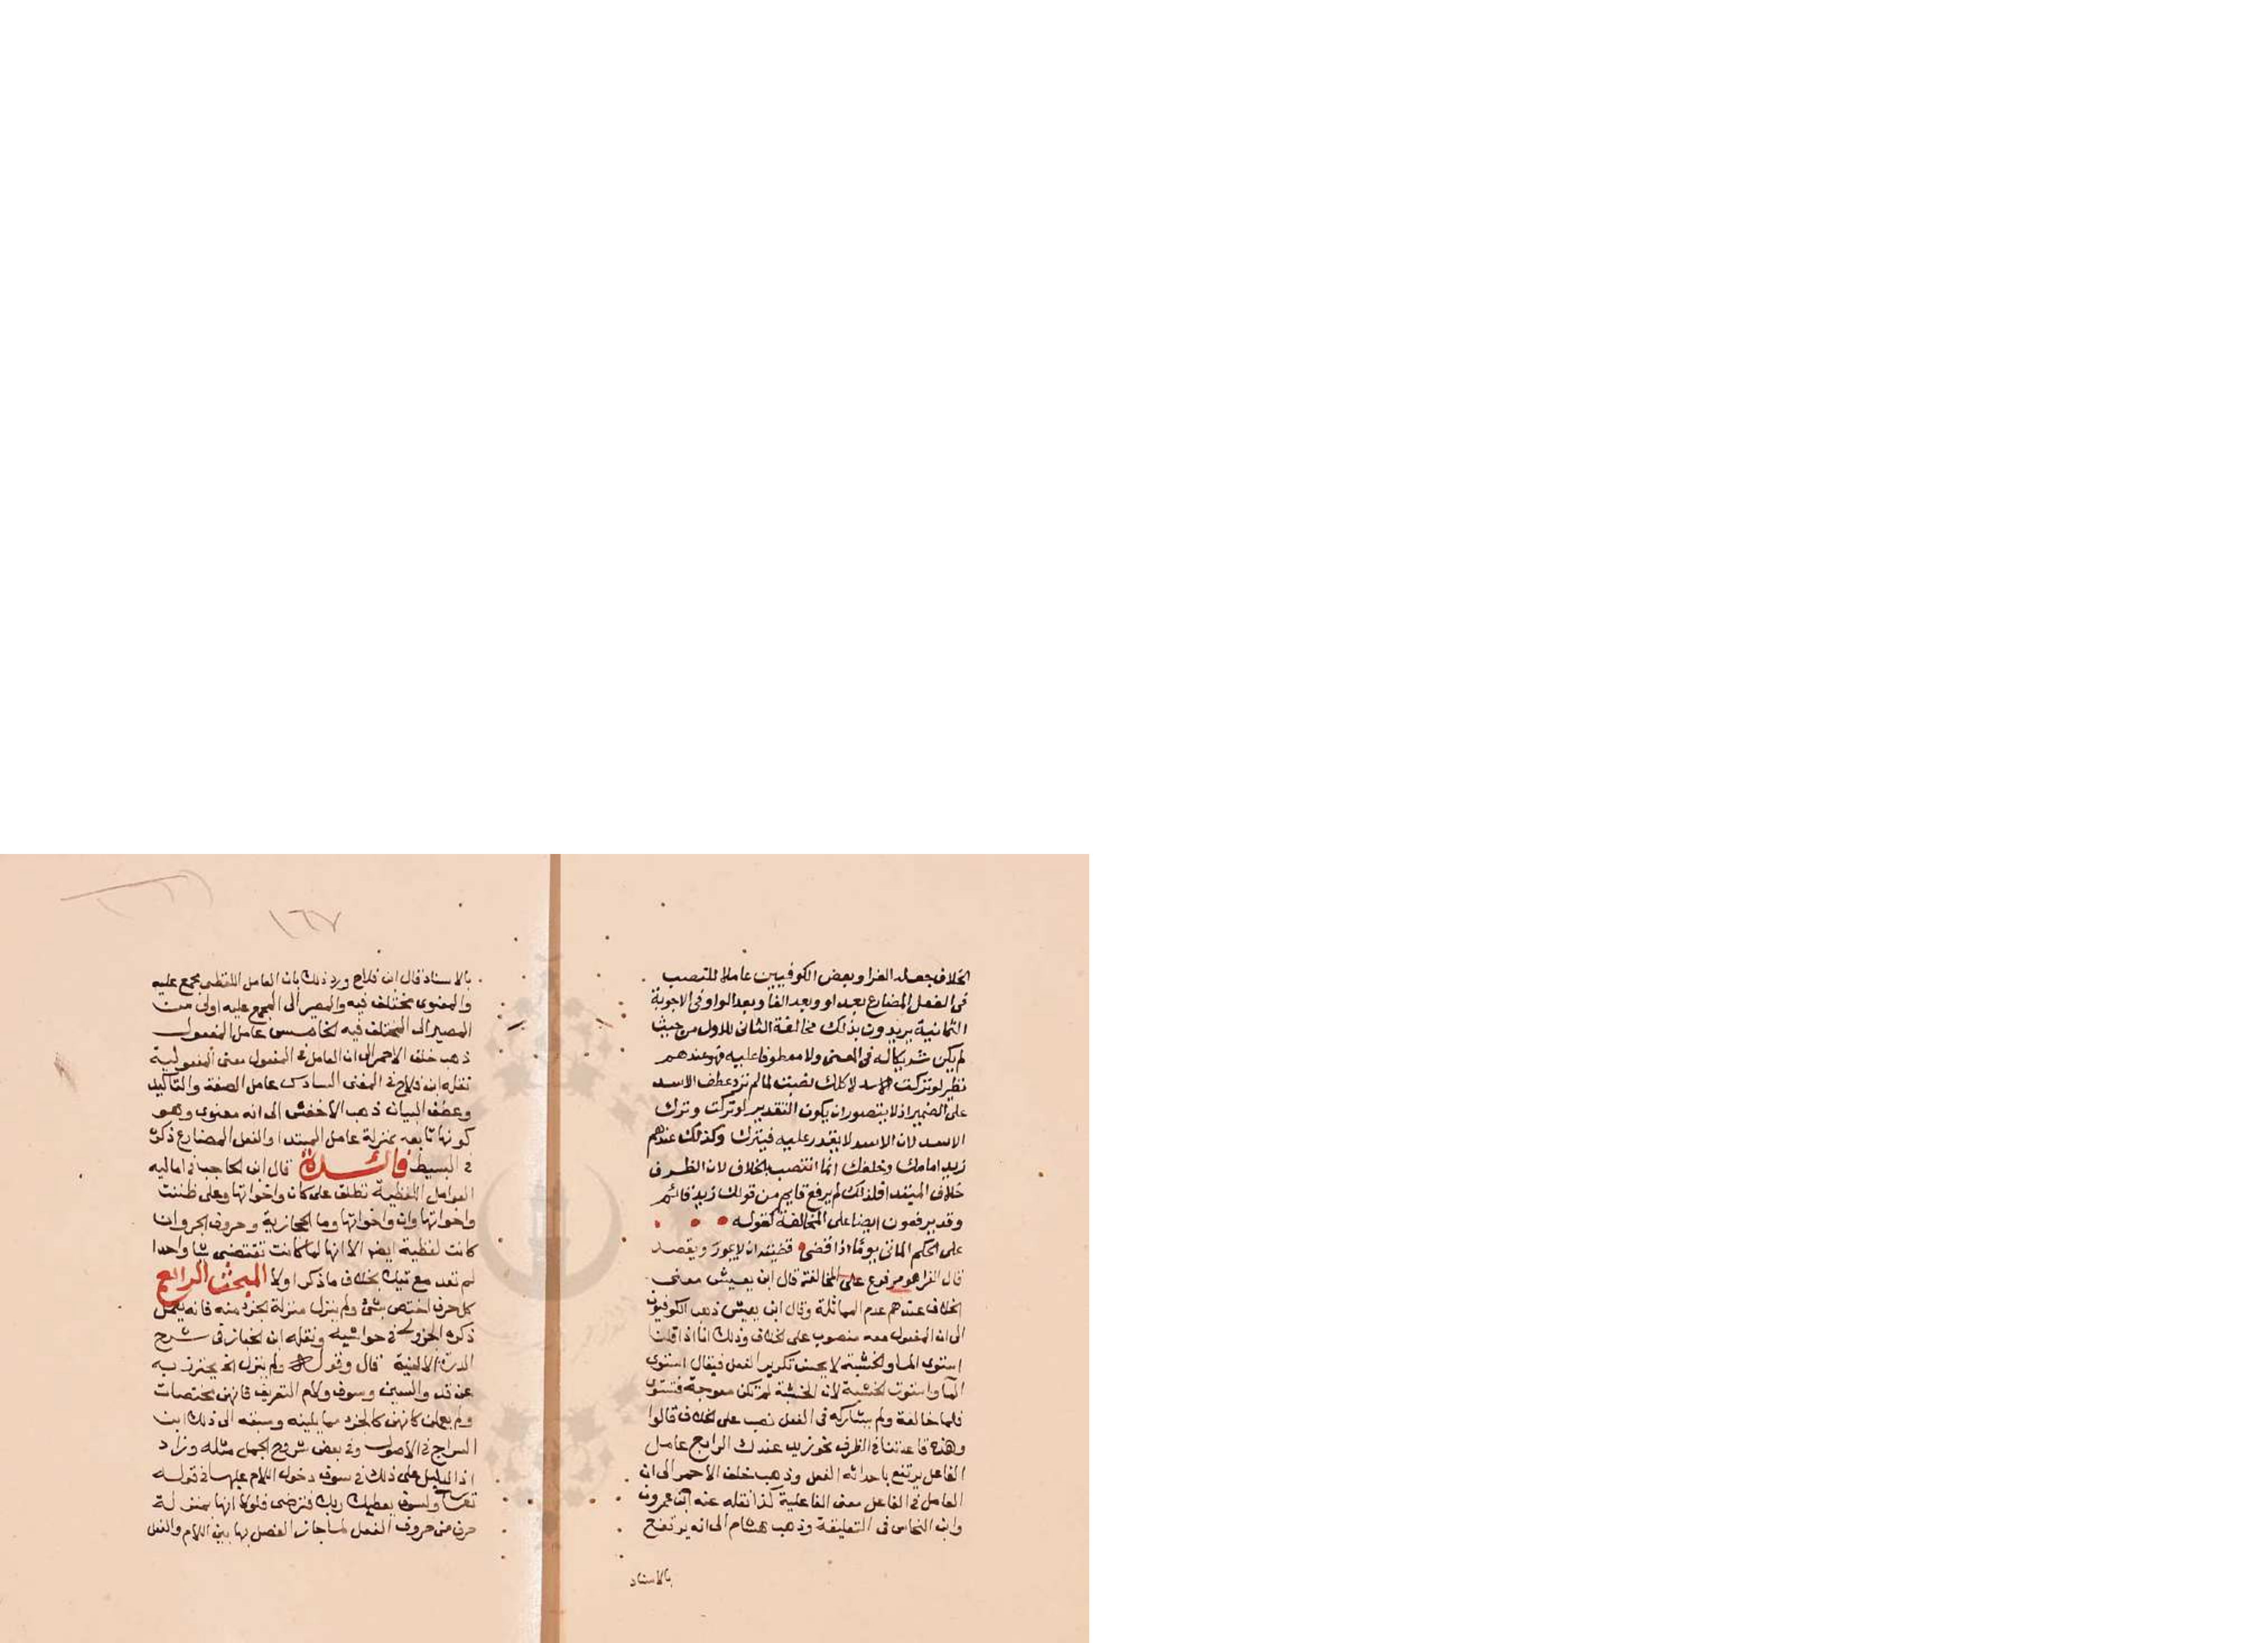 الخلاف جعله الفرا وبعض الكوفيين عاملا للنصب
فى الفعل المضارع بعد او وبعد الفا وبعد الواو فى الاجوبة
الثمانية يريدون بذلك مخالفة الثانى للاول من حيث
لم يكن شريكا له فى المعنى ولا معطوفا عليه فهو عندهم
نظير لو تركت الاسد لاكلك نصبت لما لم ترد عطف الاسد
على الضمير اذ لا يتصور ان يكون التقدير لو تركت وترك
الاسد لان الاسد لا يقدر عليه فيترك وكذلك عندهم
زيد امامك وخلفك انما انتصب بالخلاف لان الظرف
خلاف المبتدا فلذلك لم يرفع قايم من قولك زيد قائم
وقد يرفعون ايضا على المخالفة كقوله
على الحكم الماتى يوما اذا قضى قضيته ان لا يجور ويقصد
قال الفرا هو مرفوع على المخالفة قال ابن يعيش معنى
الخلاف عندهم عدم المماثلة وقال ابن يعيش ذهب الكوفيون
الى ان المفعول معه منصوب على الخلاف وذلك انا اذا قلنا
استوى الما والخشبة لا يحسن تكرير الفعل فيقال استوى
الما واستوت الخشبة لان الخشبة لم تكن معوجة فتستوى
فلما خالفه ولم يشاركه فى الفعل نصب على الخلاف قالوا
وهذه قاعدتنا فى الظرف نحو زيد عندك الرابع عامل
الفاعل يرتفع باحداثه الفعل وذهب خلف الاحمر الى ان
العامل فى الفاعل معنى الفاعلية كذا نقله عنه ابن عمرون
وابن النحاس فى التعليقة وذهب هشام الى انه يرتفع
بالاسناد
١٦٧
بالاسناد قال ابن فلاح ورد ذلك بان العامل اللفظى مجمع عليه
والمعنوى مختلف فيه والمصير الى المجمع عليه اولى من
المصير الى المختلف فيه الخامس عامل المفعول
ذهب خلف الاحمر الى ان العامل فى المفعول معنى المفعولية
نقله ابن فلاح فى المغنى السادس عامل الصفة والتاكيد
وعطف البيان ذهب الاخفش الى انه معنوى وهو
كونها تابعه بمنزلة عامل المبتدا والفعل المضارع ذكره
فى البسيط فائدة قال ابن الحاجب فى اماليه
العوامل اللفظية تطلق على كان واخواتها وعلى ظننت
واخواتها وان واخواتها وما الحجازية وحروف الجر وان
كانت لفظية ايضا الا انها لما كانت تقتضى شيا واحدا
لم تعد مع تيك بخلاف ما ذكر اولا المبحث الرابع
كل حرف اختص بشئ ولم ينزل منزلة الجزء منه فانه يعمل
ذكره الجزولى فى حواشيه ونقله ابن الخباز فى شرح
الدرة الالفية قال وقوله ولم ينزل الخ يحترز به
عن قد والسين وسوف ولام التعريف فانهن مختصات
ولم يعملن كانهن كالجزء مما يليه وسبقه الى ذلك ابن
السراج فى الاصول وفى بعض شروح الجمل مثله وزاد
اذ الدليل على ذلك فى سوف دخول اللام عليها فى قوله
تعالى ولسوف يعطيك ربك فترضى فلولا انها بمنزلة
حرف من حروف الفعل لما جاز الفصل بها بين اللام والفعل